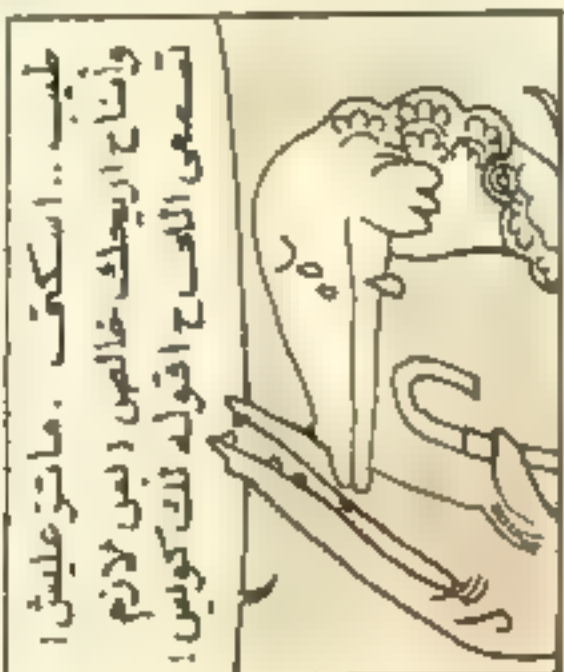 طيب .. اسكتى . ماتزعليش !
وأنا ح اريحك خالص ! بس لازم
تسمعى اللى ح اقوله لك كويس !